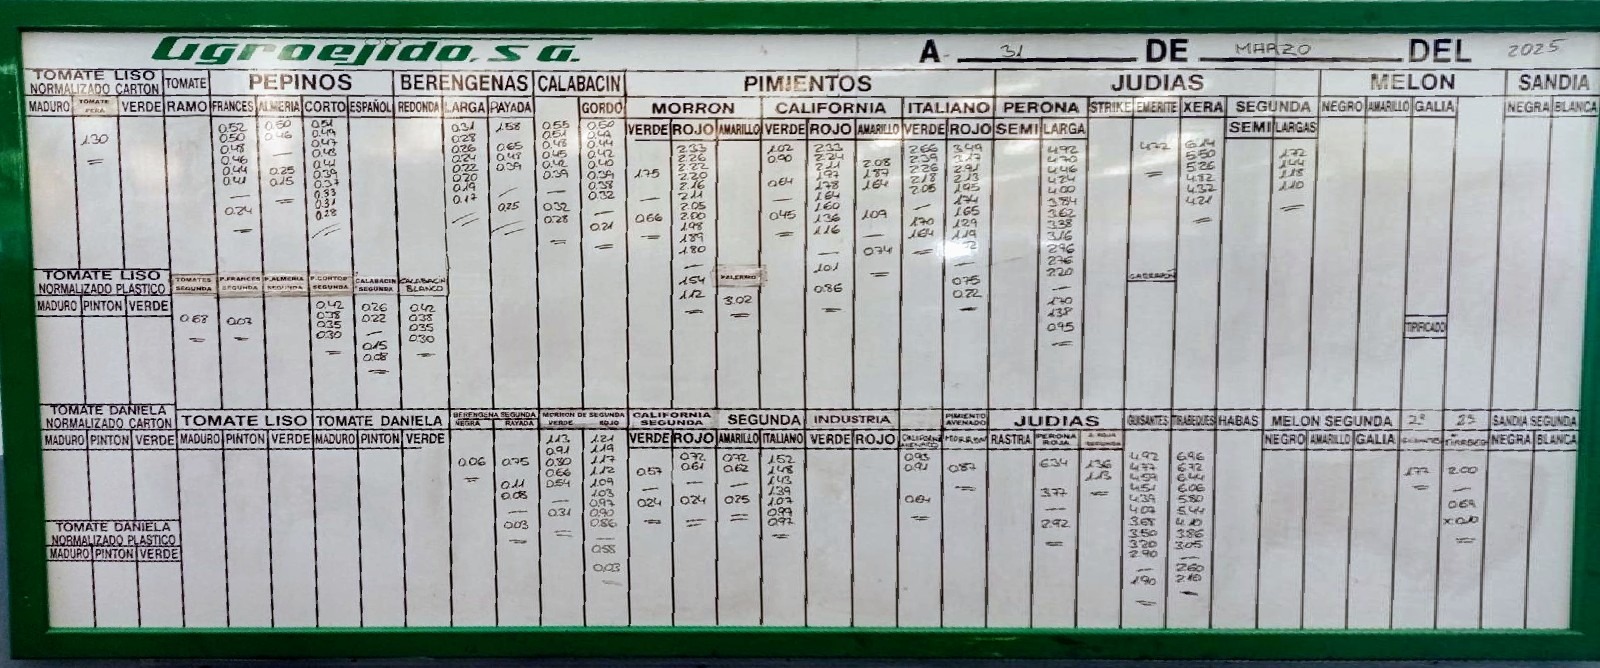 Agroejido, S.A.
A 31 DE MARZO DEL 2025
TOMATE LISO NORMALIZADO CARTON TOMATE PEPINOS BERENGENAS CALABACIN PIMIENTOS JUDIAS MELON SANDIA
MORRON CALIFORNIA ITALIANO PERONA STRIKE EMERITE XERA SEGUNDA
MADURO TOMATE PERA VERDE RAMO FRANCES ALMERIA CORTO ESPAÑOL REDONDA LARGA RAYADA GORDO NEGRO AMARILLO GALIA NEGRA BLANCA
VERDE ROJO AMARILLO VERDE ROJO AMARILLO VERDE ROJO SEMI LARGA SEMI LARGAS
1.30
0.52 0.50 0.48 0.46 0.44 0.41 0.24
0.50 0.46 0.25 0.15
0.31 0.28 0.26 0.24 0.22 0.20 0.19 0.17
1.58 0.65 0.48 0.39 0.25
0.55 0.51 0.48 0.45 0.42 0.39 0.32 0.28
0.50 0.44 0.44 0.42 0.40 0.39 0.38 0.32 0.21
1.75 0.66
2.33 2.26 2.22 2.20 2.16 2.11 2.05 2.00 1.98 1.89 1.80 1.54 1.12
1.02 0.90 0.64 0.45
2.33 2.24 2.11 1.97 1.78 1.64 1.60 1.36 1.16 1.01 0.86
2.08 1.87 1.64 1.09 0.74
2.66 2.39 2.26 2.18 2.05 1.70 1.64
3.49 3.17 2.91 2.13 1.95 1.74 1.65 1.29 1.19
0.75 0.22
4.92 4.70 4.46 4.24 4.00 3.84 3.62 3.38 3.16 2.96 2.76 2.20 1.70 1.38 0.95
4.72
6.14 5.50 5.26 4.82 4.37 4.21
1.72 1.44 1.18 1.10
TOMATE LISO NORMALIZADO PLASTICO TOMATES SEGUNDA P.FRANCES SEGUNDA P.ALMERIA SEGUNDA P.CORTOS SEGUNDA CALABACIN SEGUNDA CALABACIN BLANCO PALERMO GARRAFON
MADURO PINTON VERDE
0.68
0.07
0.42 0.38 0.35 0.30
0.26 0.22 0.15 0.08
0.42 0.38 0.35 0.30
3.02
TIPIFICADO
TOMATE DANIELA NORMALIZADO CARTON TOMATE LISO TOMATE DANIELA BERENGENA SEGUNDA MORRON DE SEGUNDA CALIFORNIA SEGUNDA SEGUNDA INDUSTRIA PIMIENTO AVENADO JUDIAS GUISANTES TIRABEQUES HABAS MELON SEGUNDA 2ª 2ª SANDIA SEGUNDA
MADURO PINTON VERDE MADURO PINTON VERDE MADURO PINTON VERDE NEGRA RAYADA VERDE ROJO VERDE ROJO AMARILLO ITALIANO VERDE ROJO MORRON RASTRA PERONA ROJA NEGRO AMARILLO GALIA GUISANTES NEGRA BLANCA
0.06
0.75 0.11 0.08 0.03
1.13 0.91 0.80 0.66 0.54 0.31
1.21 1.19 1.17 1.12 1.09 1.03 0.97 0.90 0.86 0.58 0.03
0.57 0.24
0.72 0.61 0.24
0.72 0.62 0.25
1.52 1.48 1.43 1.39 1.07 0.99 0.97
0.93 0.91 0.64
0.87
6.34 3.77 2.92
1.36 1.13
4.92 4.77 4.59 4.51 4.39 4.07 3.68 3.50 3.20 2.90 1.90
6.96 6.72 6.44 6.06 5.80 5.44 4.10 3.86 3.05 2.60 2.10
1.72
2.00 0.69
TOMATE DANIELA NORMALIZADO PLASTICO
MADURO PINTON VERDE